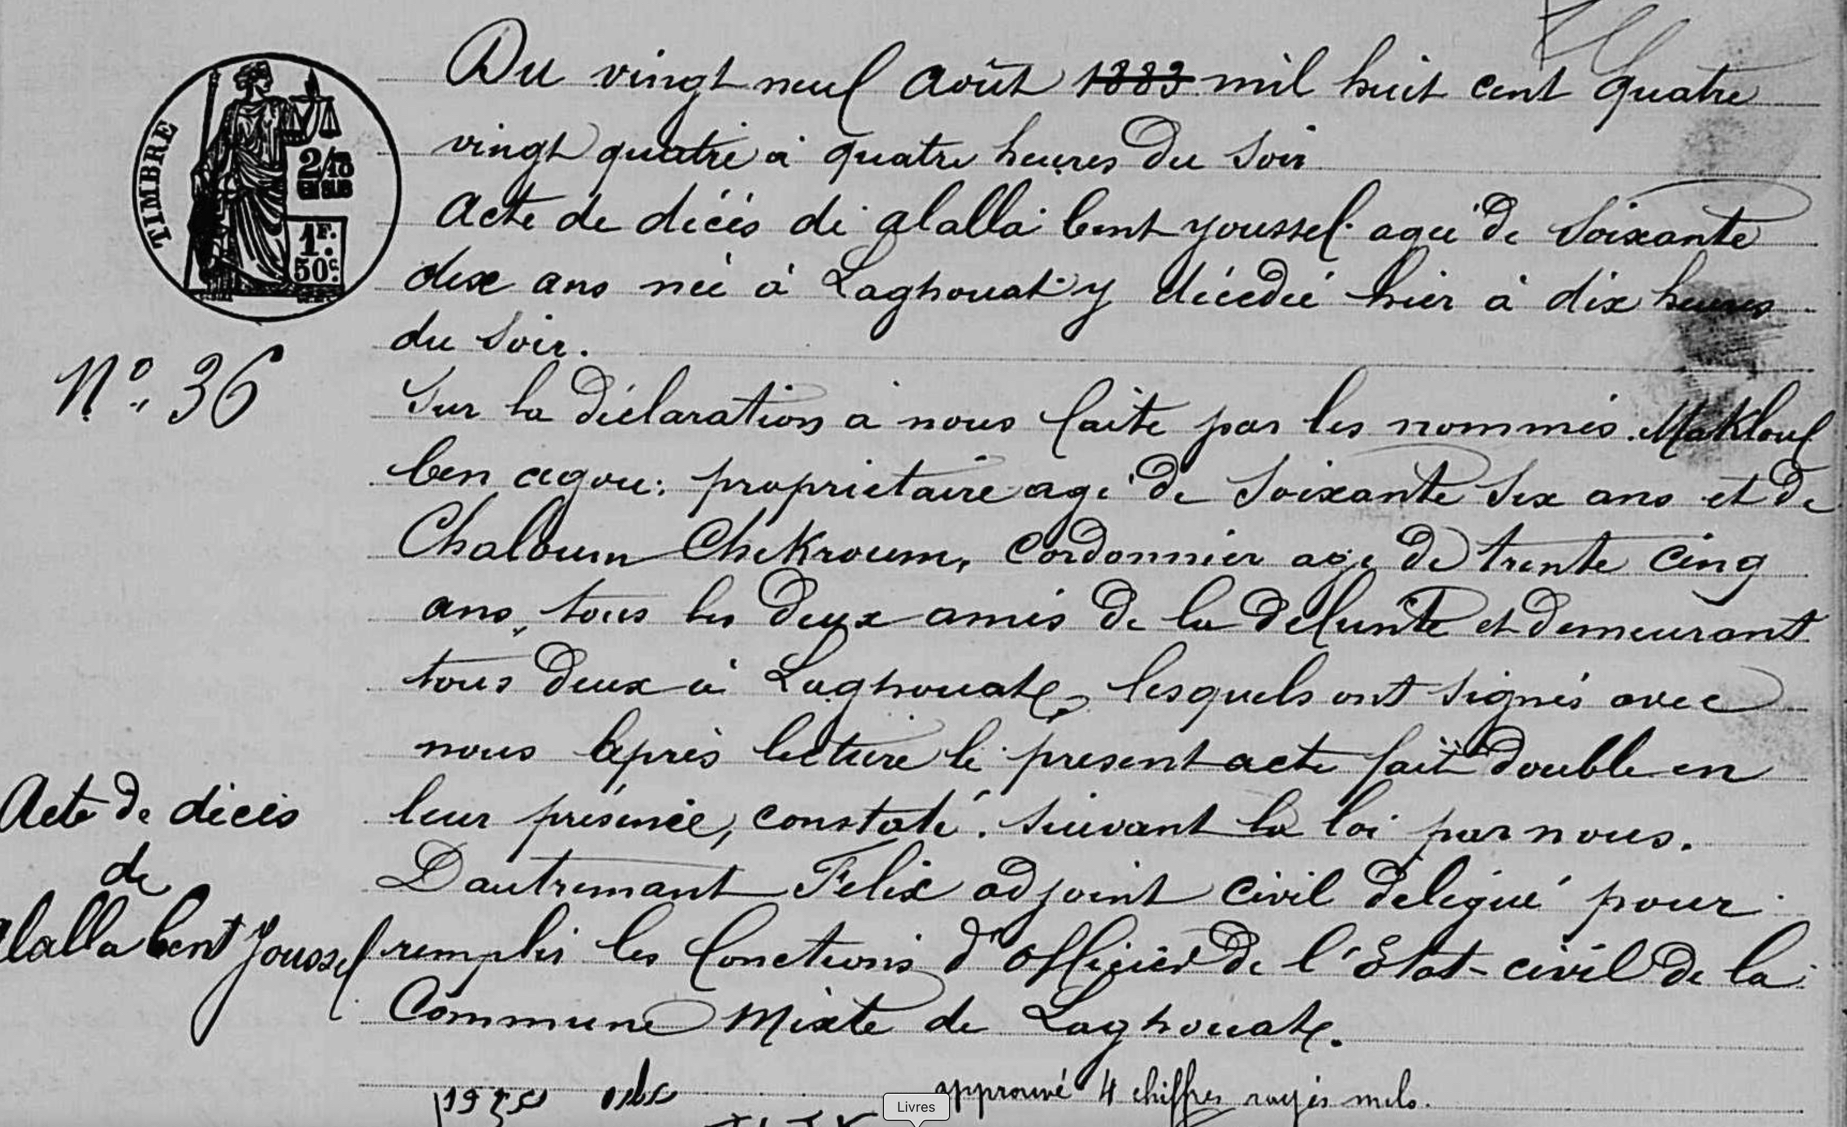 Du vingt neuf Août 1883 mil huit cent quatre
vingt quatre à quatre heures du soir
TIMBRE
2/10
EN SUS
1F.
50c.
Acte de décès de alalla bent youssef agée de soixante
dix ans née à Laghouat y décédée hier à dix heures
du soir.
No. 36
Sur la déclaration à nous faite par les nommés Maklouf
ben cegou: propriétaire agé de soixante six ans et de
Chaloum Chekroum, cordonnier agé de trente cinq
ans, tous les deux amis de la défunte et demeurant
tous deux à Laghouat, lesquels ont signés avec
nous après lecture le présent acte fait double en
leur présence, constaté suivant la loi par nous.
Dautremant Felix adjoint civil délégué pour
remplir les fonctions d'officier de l'Etat-civil de la
Commune Mixte de Laghouat.
Acte de décès
de
alalla bent Joussef
approuvé 4 chiffres rayés nuls.
Livres